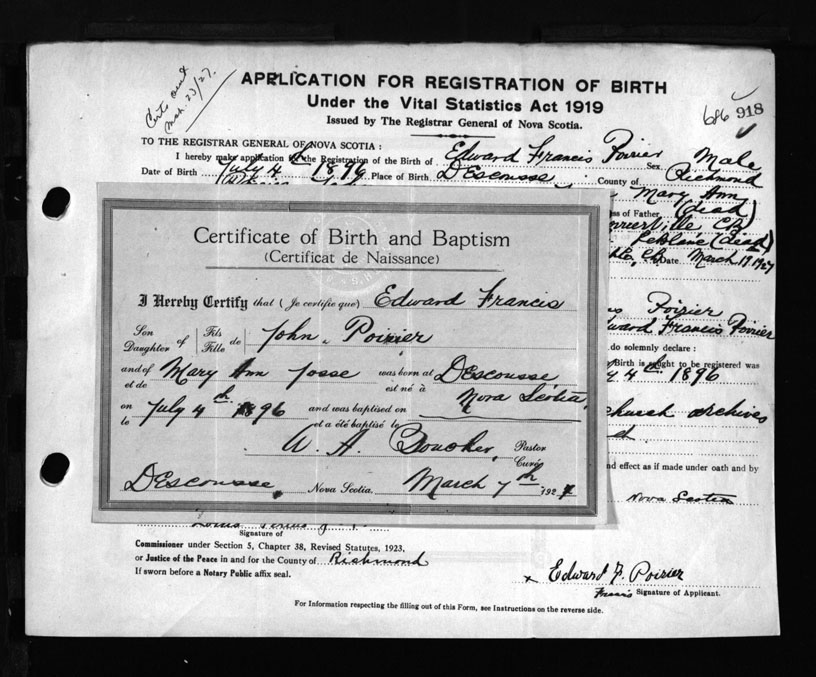 Certs sent
Mch. 23/27.
APPLICATION FOR REGISTRATION OF BIRTH
Under the Vital Statistics Act 1919
Issued by The Registrar General of Nova Scotia.
686 918
TO THE REGISTRAR GENERAL OF NOVA SCOTIA:
I hereby make application for the Registration of the Birth of Edward Francis Poirier Sex Male
Date of Birth July 4th 1896 Place of Birth DEscousse County of Richmond
Mary Ann
ss of Father (dead)
(dead)
Date March 19 1927
Certificate of Birth and Baptism
(Certificat de Naissance)
I Hereby Certify that (Je certifie que) Edward Francis
Son Daughter of Fils Fille de John Poirier
and of et de Mary Ann Josse was born at est né à DEscousse
Nova Scotia
on le July 4th 1896 and was baptised on et a été baptisé le
W. A. Boucher, Pastor Curé
DEscousse, Nova Scotia. March 7th 1927
Poirier
Edward Francis Poirier
do solemnly declare:
Birth is sought to be registered was
4th 1896
church archives
nd effect as if made under oath and by
Nova Scotia
Signature of
Commissioner under Section 5, Chapter 38, Revised Statutes, 1923,
or Justice of the Peace in and for the County of Richmond
If sworn before a Notary Public affix seal.
x Edward F. Poirier
Francis Signature of Applicant.
For Information respecting the filling out of this Form, see Instructions on the reverse side.